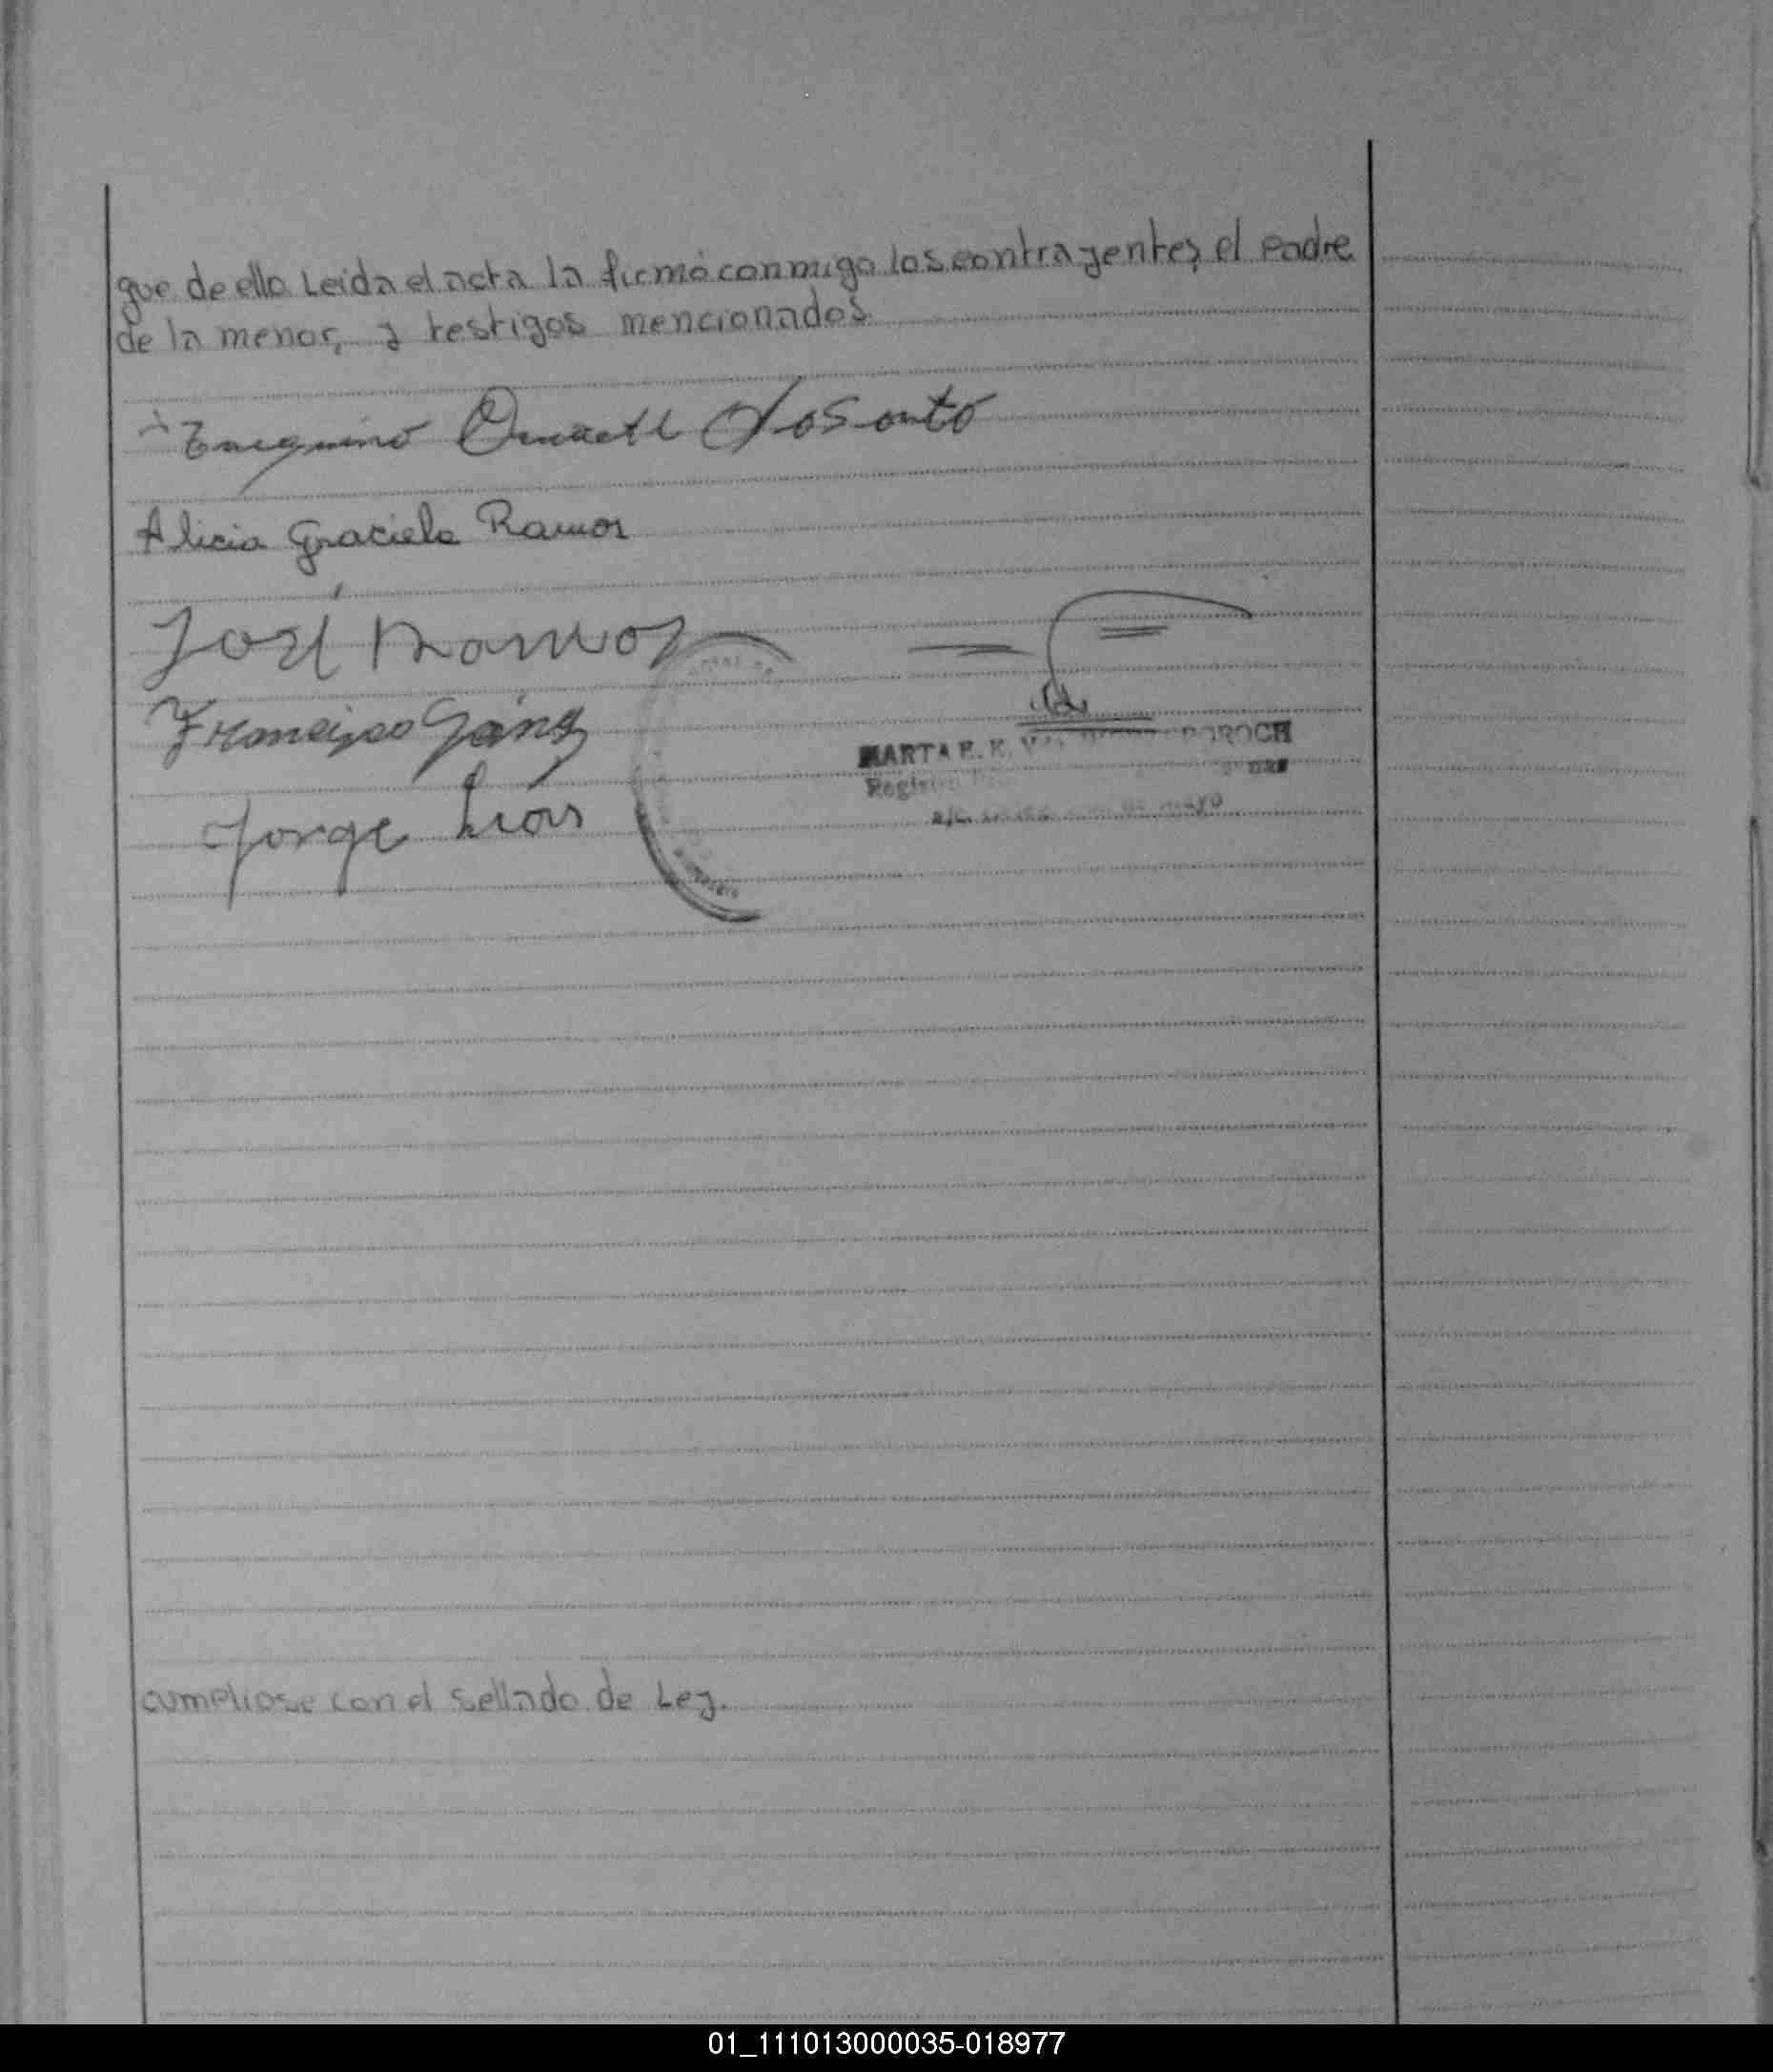 que de ello Leida el acta la firmó conmigo los contrayentes, el Padre
de la menor, y testigos mencionados.
Dos Santo
Alicia Graciela Ramos
José Ramos
Francisco
Jorge
MARTA E. K.
a/c.
cumpliose con el Sellado de Ley.
01_111013000035-018977